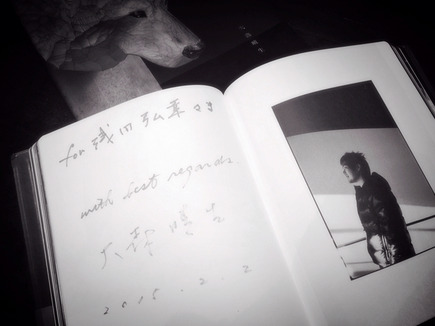 for 淺田弘幸
with best regards.
大森暁生
2015.2.2